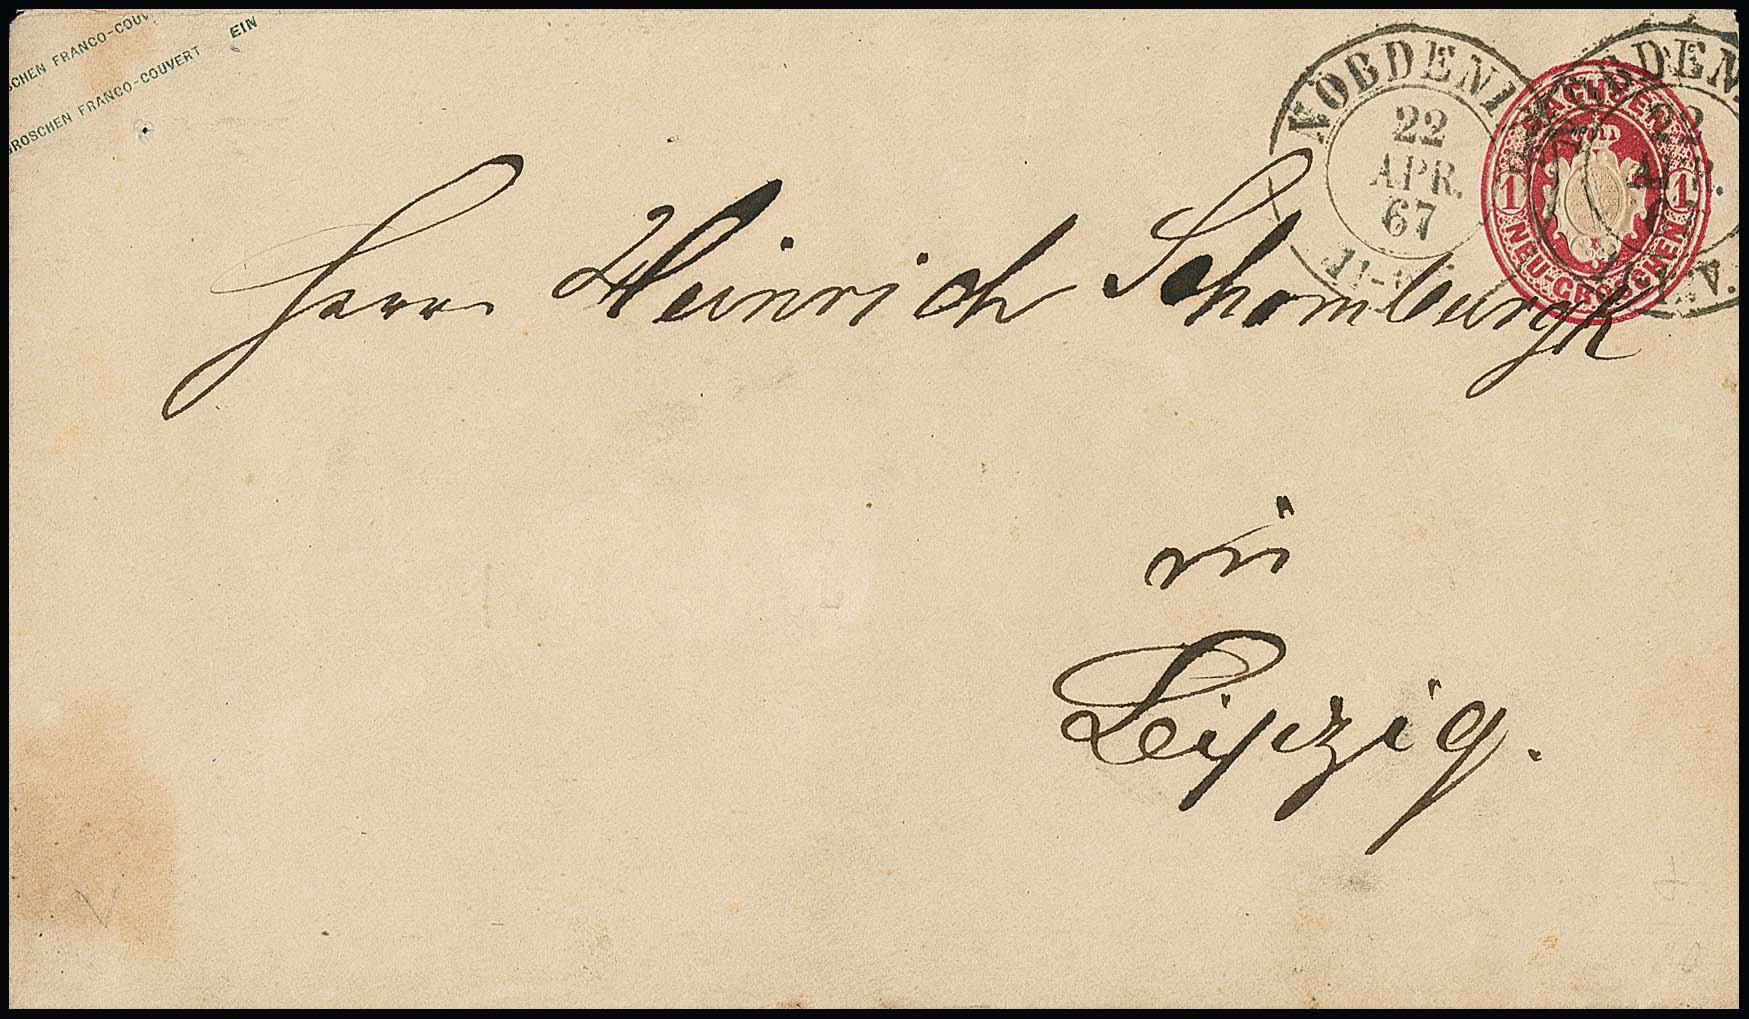 SCHEN FRANCO-COUV
GROSCHEN FRANCO-COUVERT EIN
NÖBDENIZ
22
APR.
67
SACHSEN
1 1
NEU-GROSCHEN
Herrn Heinrich Schomburgk
in
Leipzig.